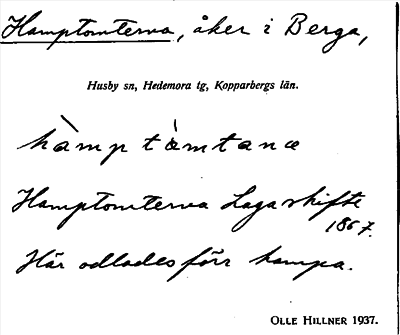 Hamptomterna, åker i Berga,
Husby sn, Hedemora tg, Kopparbergs län.
hàmp tàmtana
Hamptomterna Laga skifte
1867.
Här odlades förr hampa.
OLLE HILLNER 1937.